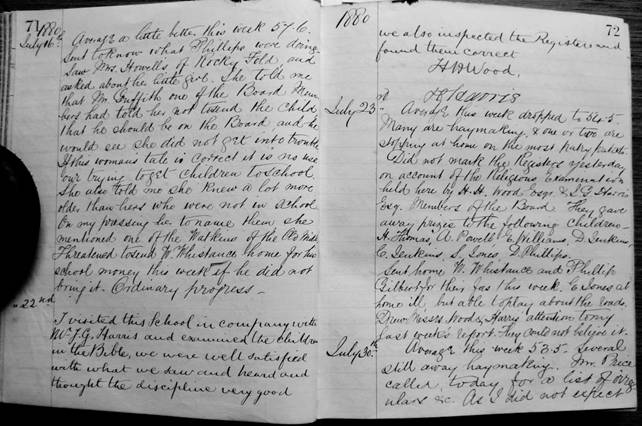 71
1880
July 16th
Average a little better this week 57.6.
Sent to know what Phillips were doing
Saw Mrs Howells of Rocky Fold, and
asked about her little girl. She told me
that Mr. Griffith one of the Board Mem
bers had told her not to send the Child
that he should be on the Board and he
would see she did not get into trouble
If this womans tale is correct it is no use
our trying to get Children to school.
She also told me she knew a lot more
older than hers who were not in school
On my pressing her to name them she
mentioned one of the Watkins of the
Threatened to send W. Whistance home for his
school money this week if he did not
bring it. Ordinary progress -
" 22nd
I visited this School in company with
Mr. J.G. Harris and examined the children
in the Bible, we were well satisfied
with what we saw and heard and
thought the discipline very good
1880
72
we also inspected the Registers and
found them correct
H H Wood.
Harris
July 23rd
Average this week dropped to 54.5.
Many are haymaking, & one or two are
stopping at home on the most paltry pretexts.
Did not mark the Registers yesterday
on account of the Religious Examination
held here by H.H. Wood Esqr. & J G Harris
Esq. Members of the Board They gave
away prizes to the following children -
H. Thomas, A. Powell E. Williams, D. Jenkins
E. Jenkins, S. Jones, D. Phillips.
Sent home W. Whistance and Phillip
Gilbert for their fees this week. E. Jones at
home ill, but able to play about the roads.
Drew Messrs Wood & Harris attention to my
last week's report. They could not believe it.
July 30th
Average this week 53.5- Several
still away haymaking. Mr. Price
called, today for a list of irreg
ulars &c. As I did not expect